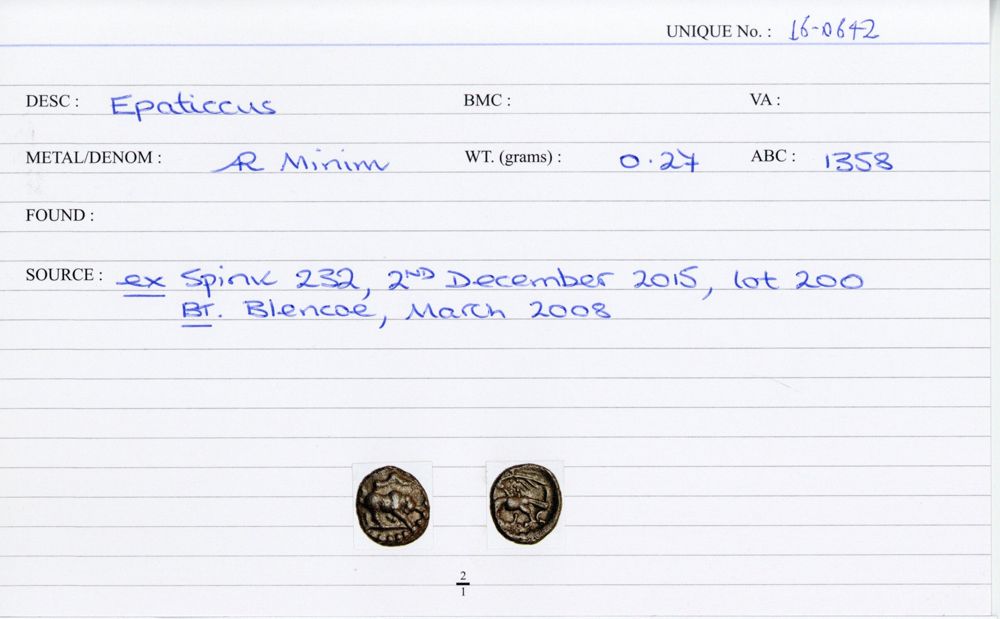 UNIQUE No. : 16-0642
DESC : Epaticcus BMC : VA :
METAL/DENOM : AR Minim WT. (grams) : 0.27 ABC : 1358
FOUND :
SOURCE : ex Spink 232, 2ND December 2015, lot 200
BT. Blencoe, March 2008
2
1